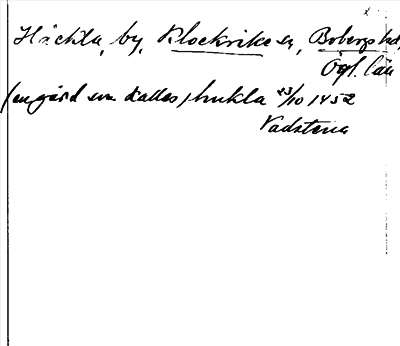 Häckla, by, Klockrike sn, Bobergs hd,
Ögl. län
(en gård som kalles) hukla 23/10 1452
Vadstena